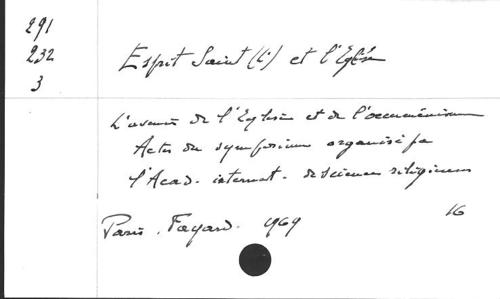 291
232
3
Esprit Saint (l') et l'Eglise
L'avenir de l'Eglise et de l'oecuménisme
Actes du symposium organisé pa
l'Acad. internat. de sciences religieuses
Paris. Fayard. 1969
16